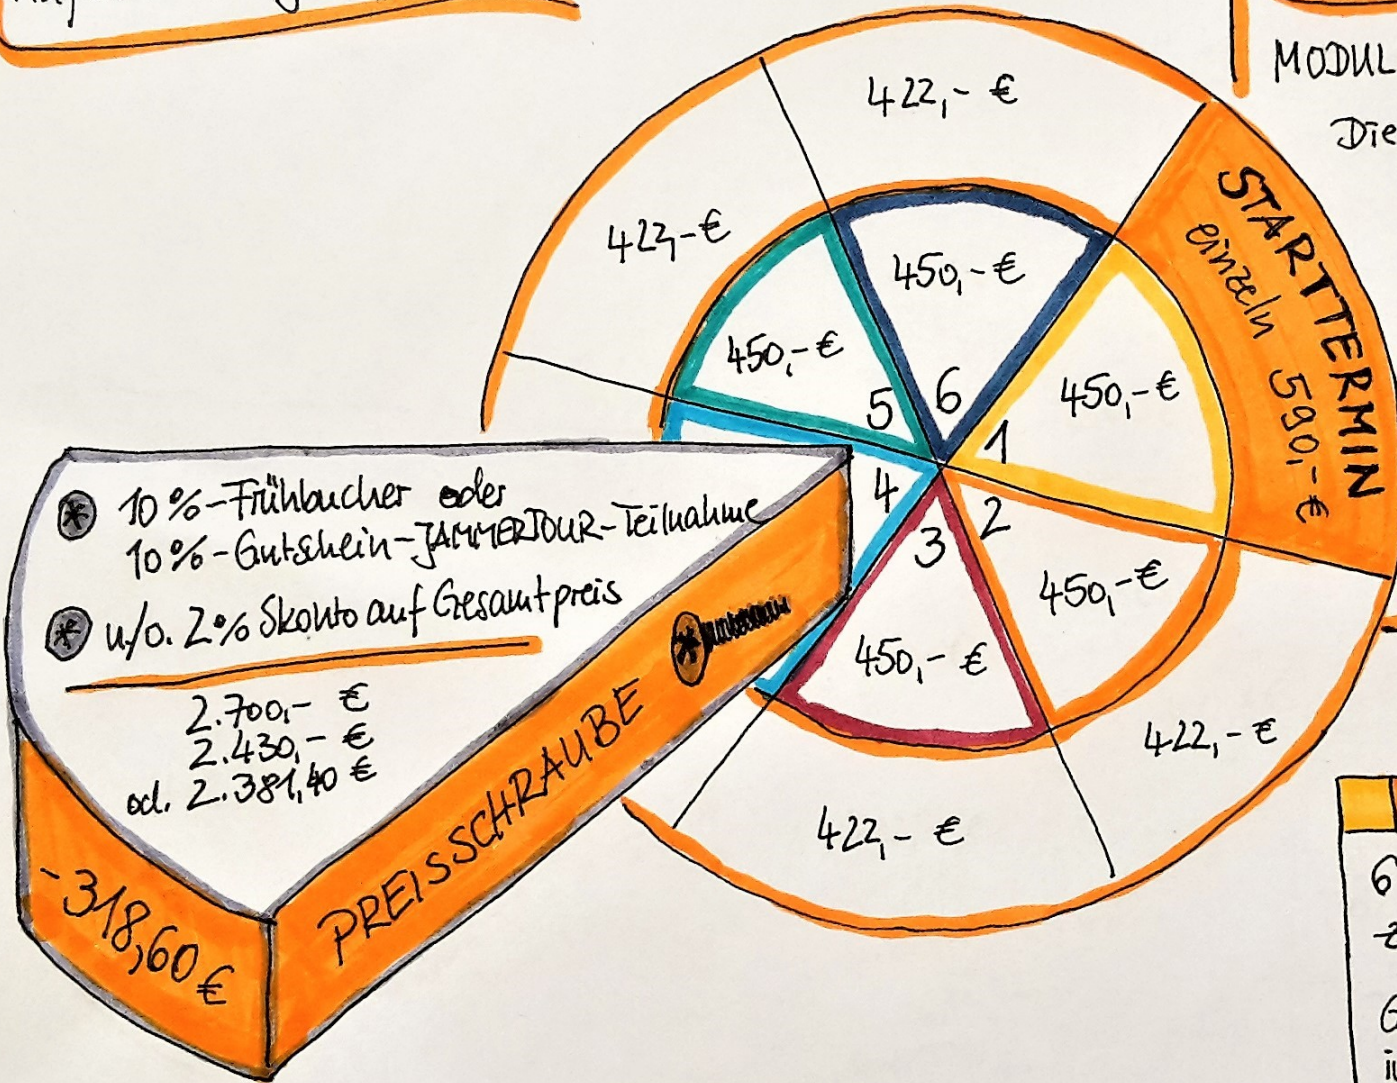 MODUL
Die
422,- €
422,- €
STARTTERMIN
einzeln 590,- €
450,- €
450,- €
450,- €
5
6
1
4
3
2
450,- €
450,- €
422,- €
422,- €
* 10%-Frühbucher oder
10%-Gutschein-JAMMERTOUR-Teilnahme
* u/o. 2% Skonto auf Gesamtpreis
2.700,- €
2.430,- €
od. 2.381,40 €
PREISSCHRAUBE *
-318,60 €
6